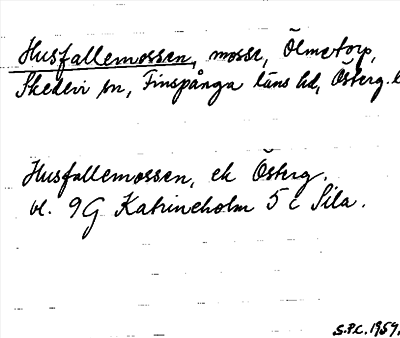 Husfallemossen, mosse, Ölmetorp,
Skedevi sn, Finspånga läns hd, Österg. l
Husfallemossen, ek Österg.
bl. 9G Katrineholm 5 c Sila.
S.P.C. 1959.